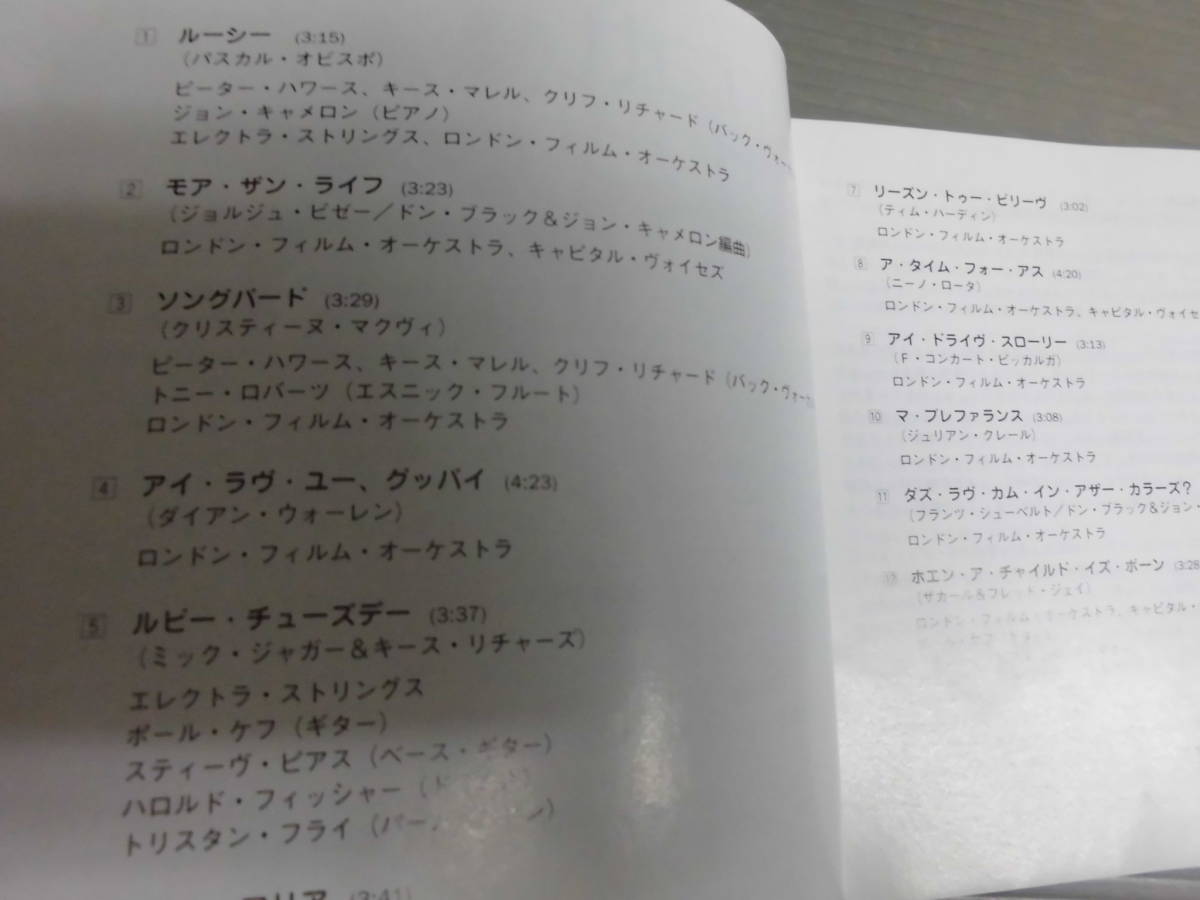 1 ルーシー (3:15)
(パスカル・オビスポ)
ピーター・ハワース、キース・マレル、クリフ・リチャード(バック・ヴォー
ジョン・キャメロン(ピアノ)
エレクトラ・ストリングス、ロンドン・フィルム・オーケストラ
2 モア・ザン・ライフ (3:23)
(ジョルジュ・ビゼー/ドン・ブラック&ジョン・キャメロン編曲)
ロンドン・フィルム・オーケストラ、キャピタル・ヴォイセズ
3 ソングバード (3:29)
(クリスティーヌ・マクヴィ)
ピーター・ハワース、キース・マレル、クリフ・リチャード(バック・ヴォー
トニー・ロバーツ(エスニック・フルート)
ロンドン・フィルム・オーケストラ
4 アイ・ラヴ・ユー、グッバイ (4:23)
(ダイアン・ウォーレン)
ロンドン・フィルム・オーケストラ
5 ルビー・チューズデー (3:37)
(ミック・ジャガー&キース・リチャーズ)
エレクトラ・ストリングス
ポール・ケフ(ギター)
スティーヴ・ピアス(ベース・ギター)
ハロルド・フィッシャー(
トリスタン・フライ(パー
マリア (3:41)
7 リーズン・トゥー・ビリーヴ (3:02)
(ティム・ハーディン)
ロンドン・フィルム・オーケストラ
8 ア・タイム・フォー・アス (4:20)
(ニーノ・ロータ)
ロンドン・フィルム・オーケストラ、キャピタル・ヴォイセ
9 アイ・ドライヴ・スローリー (3:13)
(F・コンカート・ピッカルガ)
ロンドン・フィルム・オーケストラ
10 マ・プレファランス (3:08)
(ジュリアン・クレール)
ロンドン・フィルム・オーケストラ
11 ダズ・ラヴ・カム・イン・アザー・カラーズ?
(フランツ・シューベルト/ドン・ブラック&ジョン・
ロンドン・フィルム・オーケストラ
12 ホエン・ア・チャイルド・イズ・ボーン (3:28
(ザカール&フレッド・ジェイ)
ロンドン・フィルム・オーケストラ、キャピタル・